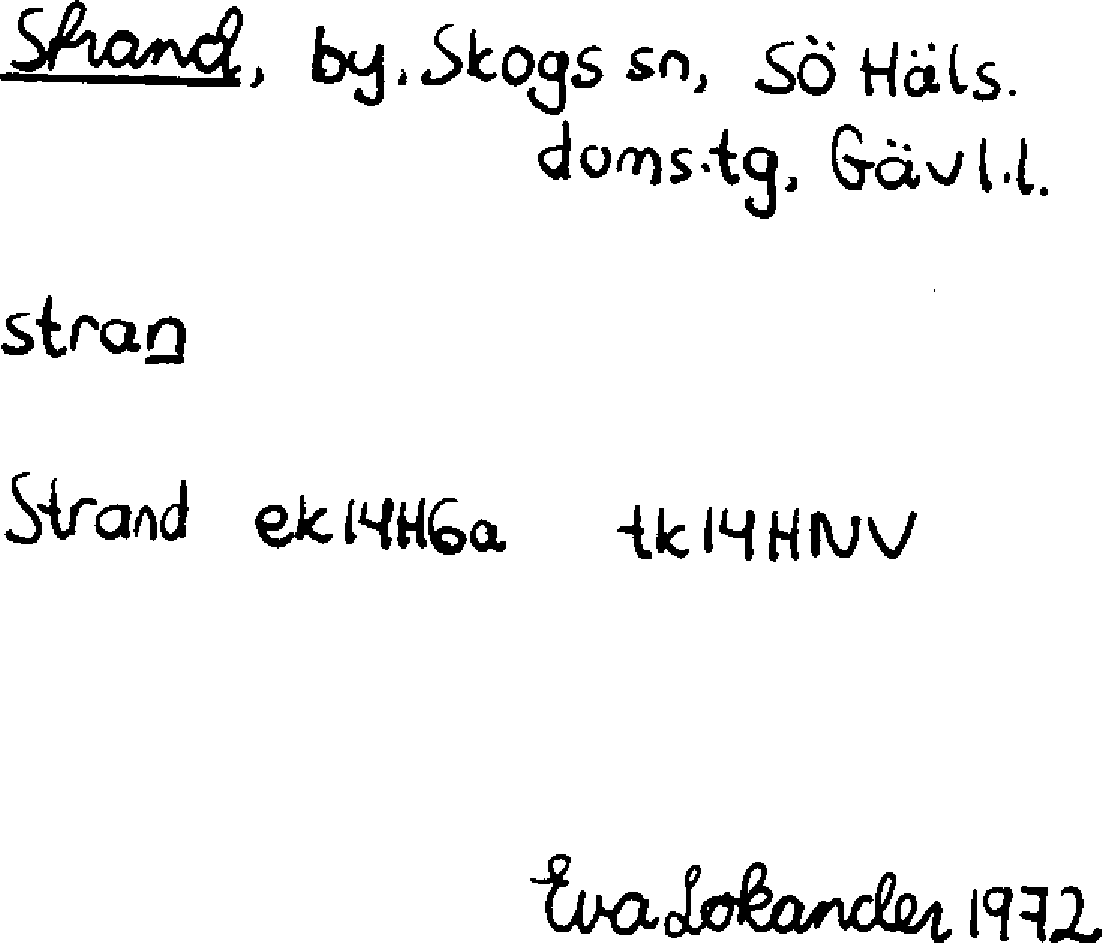 Strand, by, Skogs sn, Sö Häls.
doms.tg, Gävl.l.
stran
Strand ek14H6a tk14HNV
Eva Lokander 1972